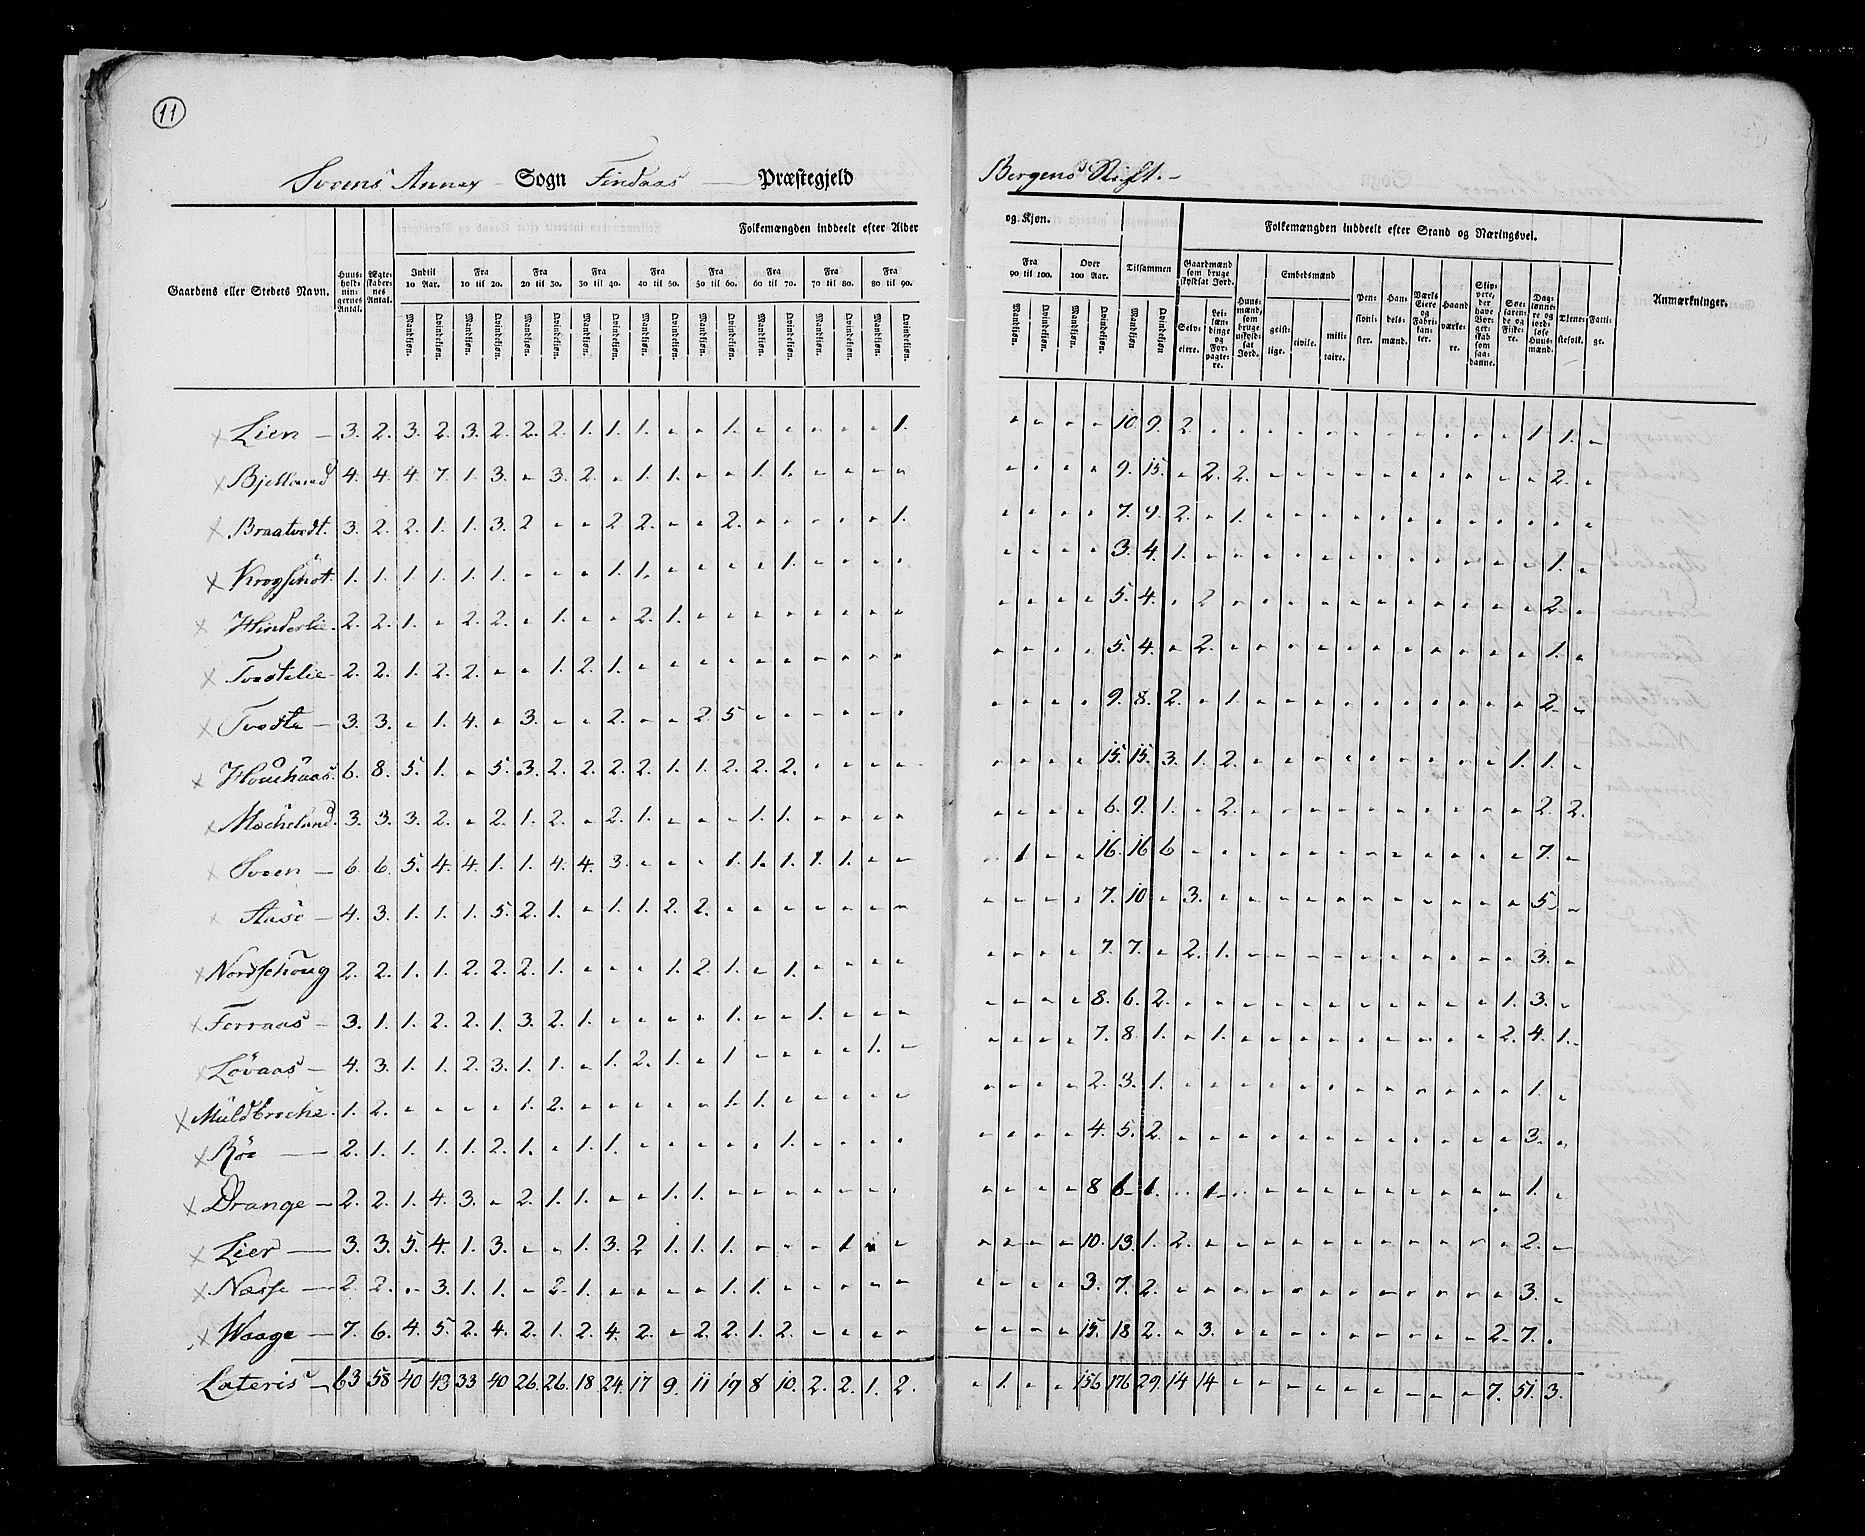 11
Sveens Annex Sogn Findaas Præstegjeld Bergens Stift.
Gaardens eller Stedets Navn. Huusholdningernes Antal. Ægteskabernes Antal. Folkemængden inddeelt efter Alder og Kjøn. Tilsammen Folkemængden inddeelt efter Stand og Næringsvei. Anmærkninger.
Indtil 10 Aar. Fra 10 til 20. Fra 20 til 30. Fra 30 til 40. Fra 40 til 50. Fra 50 til 60. Fra 60 til 70. Fra 70 til 80. Fra 80 til 90. Fra 90 til 100. Over 100 Aar.
Mandkjøn. Qvindekjøn.
Gaardmænd som bruge skyldsat Jord. Selveiere. Leilændinge og Forpagtere. Huusmænd, som bruge uskyldsat Jord. Embedsmænd geistlige. civile. militaire. Pensionister. Handelsmænd. Værkseiere og Fabrikanter. Haandværkere. Skippere, der have Borgerskab som saadanne. Søefarende og Fiskere. Daglønnere og jordløse Huusmænd. Tjenestefolk. Fattige.
Lien — 3. 2. 3. 2. 3. 2. 2. 2. 1. 1. 1. - - 1. - - - - - 1. - - - - 10. 9. 2. - - - - - - - - - - - 1. 1. -
Bjelland 4. 4. 4. 7. 1. 3. - 3. 2. - 1. 1. - - 1. 1. - - - - - - - - 9. 15. - 2. 2. - - - - - - - - - - 2. -
Braatvedt. 3. 2. 2. 1. 1. 3. 2 - - 2 2. - - 2. - - - - - 1. - - - - 7. 9. 2. - 1. - - - - - - - - - - - -
Krogschot. 1. 1. 1. 1. 1. 1. - - - 1. 1. - - - - 1. - - - - - - - - 3. 4. 1. - - - - - - - - - - - - 1. -
Hinderlie. 2. 2. 1. - 2. 2. - 1. - - 2. 1. - - - - - - - - - - - - 5. 4. - 2 - - - - - - - - - - - 2. -
Tvedtelie - 2. 2. 1. 2. 2. - - 1. 2. 1. - - - - - - - - - - - - - - 5. 4. - 2. - - - - - - - - - - - 1. -
Tvedte — 3. 3. - 1. 4. - 3. - - 2. - - 2. 5 - - - - - - - - - - 9. 8. 2. - 1. - - - - - - - - - - 2. -
Houchaas. 6. 8. 5. 1. - 5. 3. 2. 2. 2. 2. 1. 1. 2. 2. 2. - - - - - - - - 15. 15. 3. 1. 2. - - - - - - - - - 1. 1. -
Mæheland. 3. 3. 3. 2. - 2. 1. 2. - 2. 1. - - - 1. 1. - - - - - - - - 6. 9. 1. - 2. - - - - - - - - - - 2. 2.
Sveen — 6. 6. 5. 4. 4. 1. 1. 4. 4. 3. - - - 1. 1. 1. 1. 1. - - - 1 - - 16. 16 6 - - - - - - - - - - - - 7. -
4. 3. 1. 1. 1. 5. 2. 1. - 1. 1. 2. 2. - - - - - - - - - - - 7. 10 - 3. - - - - - - - - - - - 5. -
Nordschoug 2. 2. 1. 1. 2. 2. 2. 1. - - - 1. 2. 1. - 1. - - - - - - - - 7. 7. - 2. 1. - - - - - - - - - - 3. -
Førraas - 3. 1. 1. 2. 2. 1. 3. 2. 1. - - - - 1. - - 1. - - - - - - - 8. 6. 2. - - - - - - - - - - - 1. 3. -
Løvaas — 4. 3. 1. 1. 2. 3. 1. 1. - 1. 2. 1. - 1 - - - - 1. - - - - - 7. 8. 1. - 1. - - - - - - - - - 2. 4. 1.
Muldbroche. 1. 2. - - - - 1. 2. - - - - - 1. 1. - - - - - - - - - 2. 3. 1. - - - - - - - - - - - - 1. -
Røe — 2. 1. 1. 1. 1. 2. 1. - 1. 1. - - - - - 1. - - - - - - - - 4. 5. 2. - - - - - - - - - - - - 3. -
Drange — 2. 2. 1. 4. 3. - 2. 1. 1. - - 1. 1. - - - - - - - - - - - 8 6 1. - 1 - - - - - - - - - - 1. -
Lier — 3. 3. 5. 4. 1. 3. - - 1. 3. 2 1. 1. 1. - - - 1 - - - - - - 10. 13. 1. 2. - - - - - - - - - - - 2. -
Næsse — 2. 2. - 3. 1. 1. - 2. 1. - - - - 1. 1. - - - - - - - - - 3. 7. 2. - - - - - - - - - - - - 3. -
Waage — 7. 6. 4. 5. 2. 4. 2. 1. 2. 4. 2. - 2. 2. 1. 2. - - - - - - - - 15. 18 2. - 3. - - - - - - - - - 2. 7. -
Lateris — 63 58 40 43 33 40 26. 26. 18 24. 17 9. 11 19 8 10. 2. 2. 1. 2. - 1. - - 156 176 29. 14 14 - - - - - - - - - 7. 51. 3.